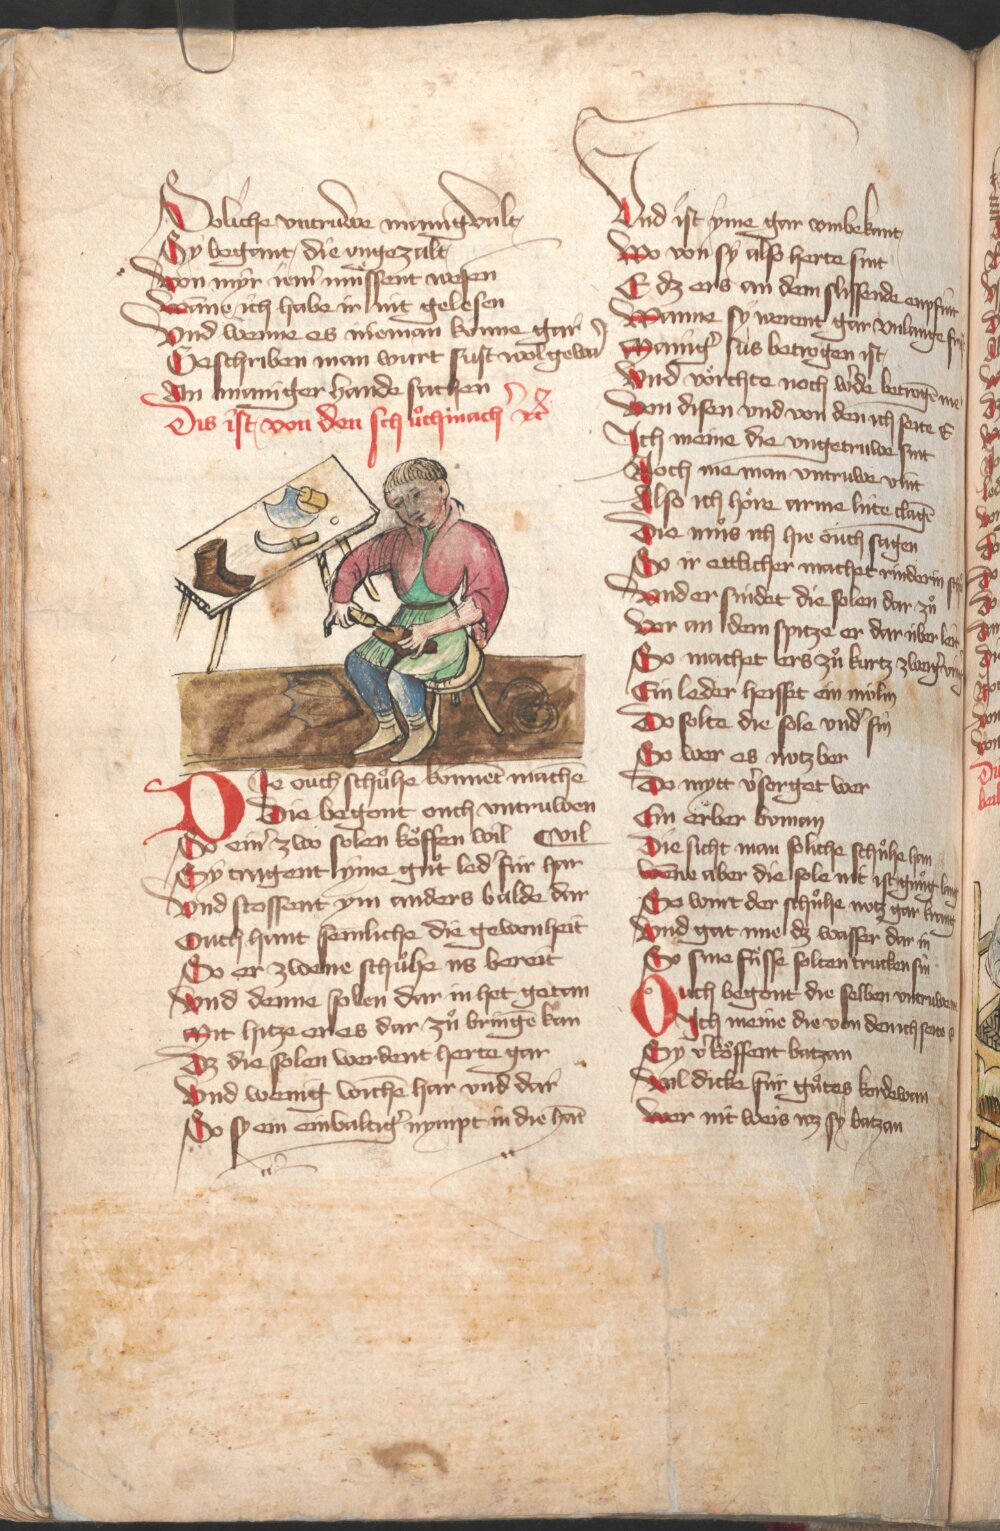 Soliche vntruwe manigvalt
Sy begant die vngezalt
Von myr iem̄ muͤssent wesen
Wanne ich habe ir nit gelesen
Vnd wenne es nieman konne gar
Geschriben man wurt sust wol gewar
An maniger hande sachen
Dis ist von den schuͦchmach̄
Die ouch schuͦhe konnet mache
Die begont ouch vntruwen
So ein̄ zwo solen koͮffen wil
Sy tragent yme guͦt led̄ für har
Vnd stossent ym anders balde dar
Ouch hant semliche die gewonheit
So er zwene schuͦhe us bereit
Vnd denne solen dar in het getan
Mit hitze er es dar zuͦ bringē kan
Dz die solen werdent herte gar
Vnd wenig wichē har vnd dar
So sy ein einvaltiḡ nympt in die hāt
Vnd ist yme gar vmbekant
Wo von sy also herte sint
E dz ers an dem slissende empfint
Wanne sy werent gar vnlange
Maniḡ sus betrogen ist
Vnd voͤrchte noch w̄de betrogē me
Von disen vnd von den ich seite E
Ich meine die vngetruwe sint
Noch me man vntruwe vint
Also ich hoͤre arme lüte clagē
Die muͦs ich hie ouch sagen
So ir ettlicher machet rinderin
Vnd er findet die solen dar zuͦ
Vor an dem spitze er dar über
So machet ers zuͦ kurtz
Ein leder heisset ein
Do solte die sole vnd̄ sin
So wer es nutzber
Do mytt v̄sorget wer
Ein erber buman
Die sicht man soliche schuͦhe han
Wēne aber die sole nit ist gnuͦg lang
So wurt der schuͦhe nutz gar krang
Vnd gat ime dz wasser dar in
So sine fuͤsse solten trucken sin
Ouch begont die selben vntruwe
Ich meine die von den ich seite e
Sy v̄koͮffent batzan
Vil dicke für guͦtes kordewan
Wer nit weis wz sy batzan